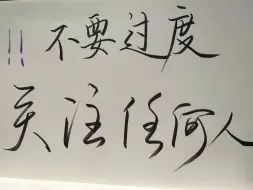 !! 不要过度
关注任何人